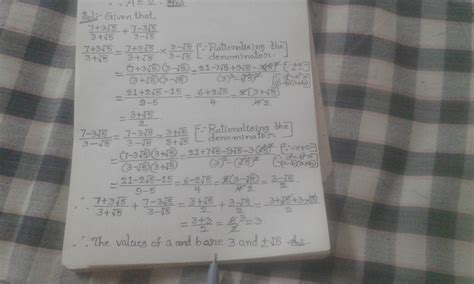 Sol:- Given that,
7+3√5/3+√5 + 7-3√5/3-√5
7+3√5/3+√5 = 7+3√5/3+√5 × 3-√5/3-√5 [∵ Rationalising the denominator]
= (7+3√5)(3-√5)/(3+√5)(3-√5) = 21-7√5+9√5-3(√5)²/(3)²-(√5)²
= 21+2√5-15/9-5 = 6+2√5/4 = 2(3+√5)/4 2
= 3+√5/2
7-3√5/3-√5 = 7-3√5/3-√5 × 3+√5/3+√5 [∵ Rationalising the denominator]
= (7-3√5)(3+√5)/(3-√5)(3+√5) = 21+7√5-9√5-3(√5)²/(3)²-(√5)²
= 21-2√5-15/9-5 = 6-2√5/4 = 2(3-√5)/4 2 = 3-√5/2
∴ 7+3√5/3+√5 + 7-3√5/3-√5 = 3+√5/2 + 3-√5/2 = 3+√5+3-√5/2
= 3+3/2 = 6/2 = 3
∴ The values of a and b are 3 and ±√5 Ans.